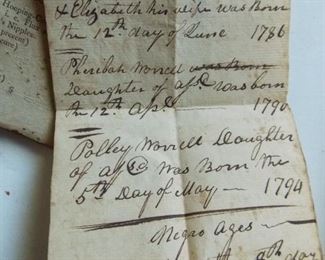 Hooping
& Elizabeth his wife was Born
the 12th day of June 1786
Pheribah Worrell was Born
Daughter of afsd was born
the 12th apl. 1790
Polley Worrell Daughter
of afsd was Born the
5th Day of May — 1794
Negro Ages —
day